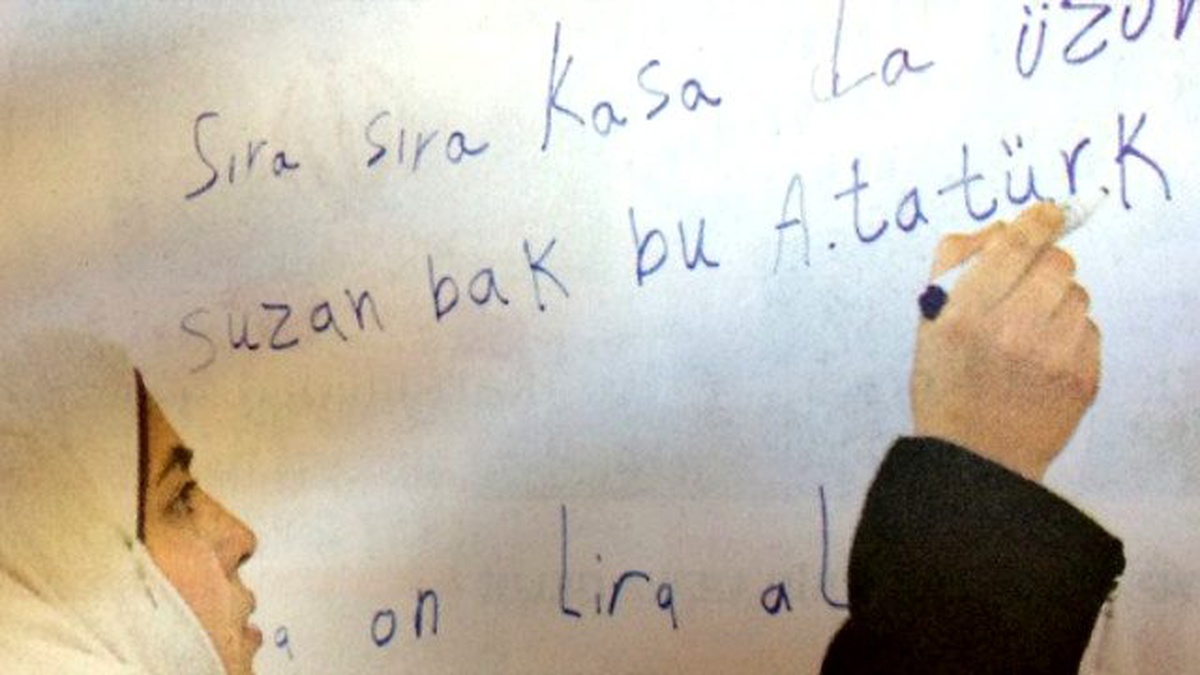 Sıra sıra Kasa La üzüm
suzan bak bu A.tatür.K
a on Lira aL